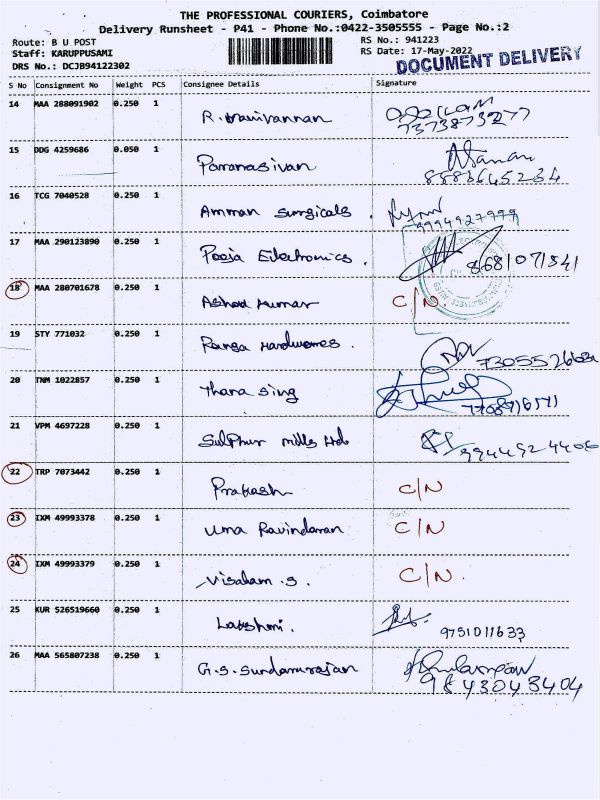 THE PROFESSIONAL COURIERS, Coimbatore
Delivery Runsheet - P41 - Phone No.:0422-3505555 - Page No.:2
Route: B U POST RS No.: 941223
Staff: KARUPPUSAMI RS Date: 17-May-2022
DRS No.: DCJB94122302 DOCUMENT DELIVERY
S No Consignment No Weight PCS Consignee Details Signature
14 MAA 288091902 0.250 1 R. Manivannan
7373873277
15 DDG 4259686 0.050 1 Paramasivan
16 TCG 7040528 0.250 1 Amman Surgicals. 9994927999
17 MAA 290123890 0.250 1 Pooja Electronics. 8681071341
18 MAA 280701678 0.250 1 Ashok Kumar C/N.
19 STY 771032 0.250 1 Ranga Hardwares.
20 TNM 1022857 0.250 1 Thara Sing
21 VPM 4697228 0.250 1 Sulphur Mills Ltd 9944924406
22 TRP 7073442 0.250 1 Prakash C/N
23 IXM 49993378 0.250 1 Uma Ravindaran C/N
24 IXM 49993379 0.250 1 Visalam.S. C/N.
25 KUR 526519660 0.250 1 Lakshmi. 9751011633
26 MAA 565807238 0.250 1 G.S. Sundararajan
9843043404